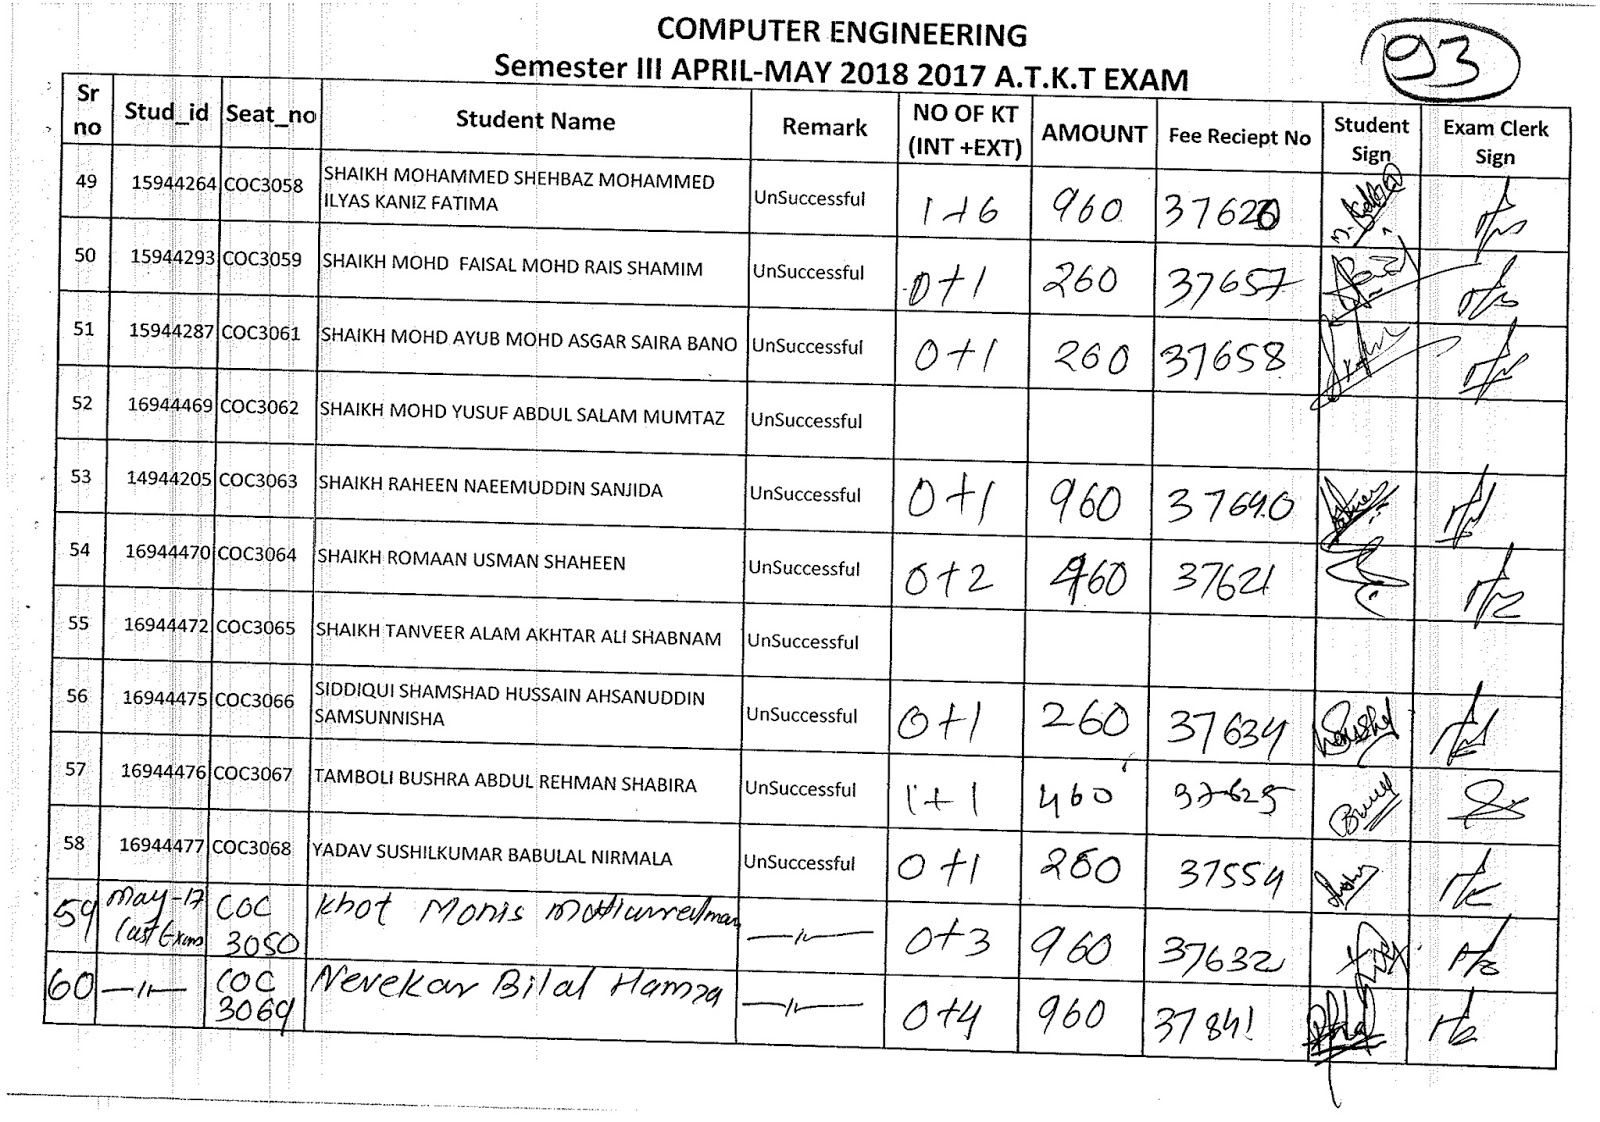 COMPUTER ENGINEERING
93
Semester III APRIL-MAY 2018 2017 A.T.K.T EXAM
Sr no Stud_id Seat_no Student Name Remark NO OF KT (INT +EXT) AMOUNT Fee Reciept No Student Sign Exam Clerk Sign
49 15944264 COC3058 SHAIKH MOHAMMED SHEHBAZ MOHAMMED
ILYAS KANIZ FATIMA UnSuccessful 1+6 960 37620
50 15944293 COC3059 SHAIKH MOHD FAISAL MOHD RAIS SHAMIM UnSuccessful 0+1 260 37657
51 15944287 COC3061 SHAIKH MOHD AYUB MOHD ASGAR SAIRA BANO UnSuccessful 0+1 260 37658
52 16944469 COC3062 SHAIKH MOHD YUSUF ABDUL SALAM MUMTAZ UnSuccessful
53 14944205 COC3063 SHAIKH RAHEEN NAEEMUDDIN SANJIDA UnSuccessful 0+1 960 37690
54 16944470 COC3064 SHAIKH ROMAAN USMAN SHAHEEN UnSuccessful 0+2 460 37621
55 16944472 COC3065 SHAIKH TANVEER ALAM AKHTAR ALI SHABNAM UnSuccessful
56 16944475 COC3066 SIDDIQUI SHAMSHAD HUSSAIN AHSANUDDIN
SAMSUNNISHA UnSuccessful 0+1 260 37634
57 16944476 COC3067 TAMBOLI BUSHRA ABDUL REHMAN SHABIRA UnSuccessful 1+1 460 37625
58 16944477 COC3068 YADAV SUSHILKUMAR BABULAL NIRMALA UnSuccessful 0+1 260 37554
59 May-17 COC Khot Monis
Last Exam 3050 —"— 0+3 960 37632
60 —"— COC Nevekar Bilal Hamza
3069 —"— 0+4 960 37841